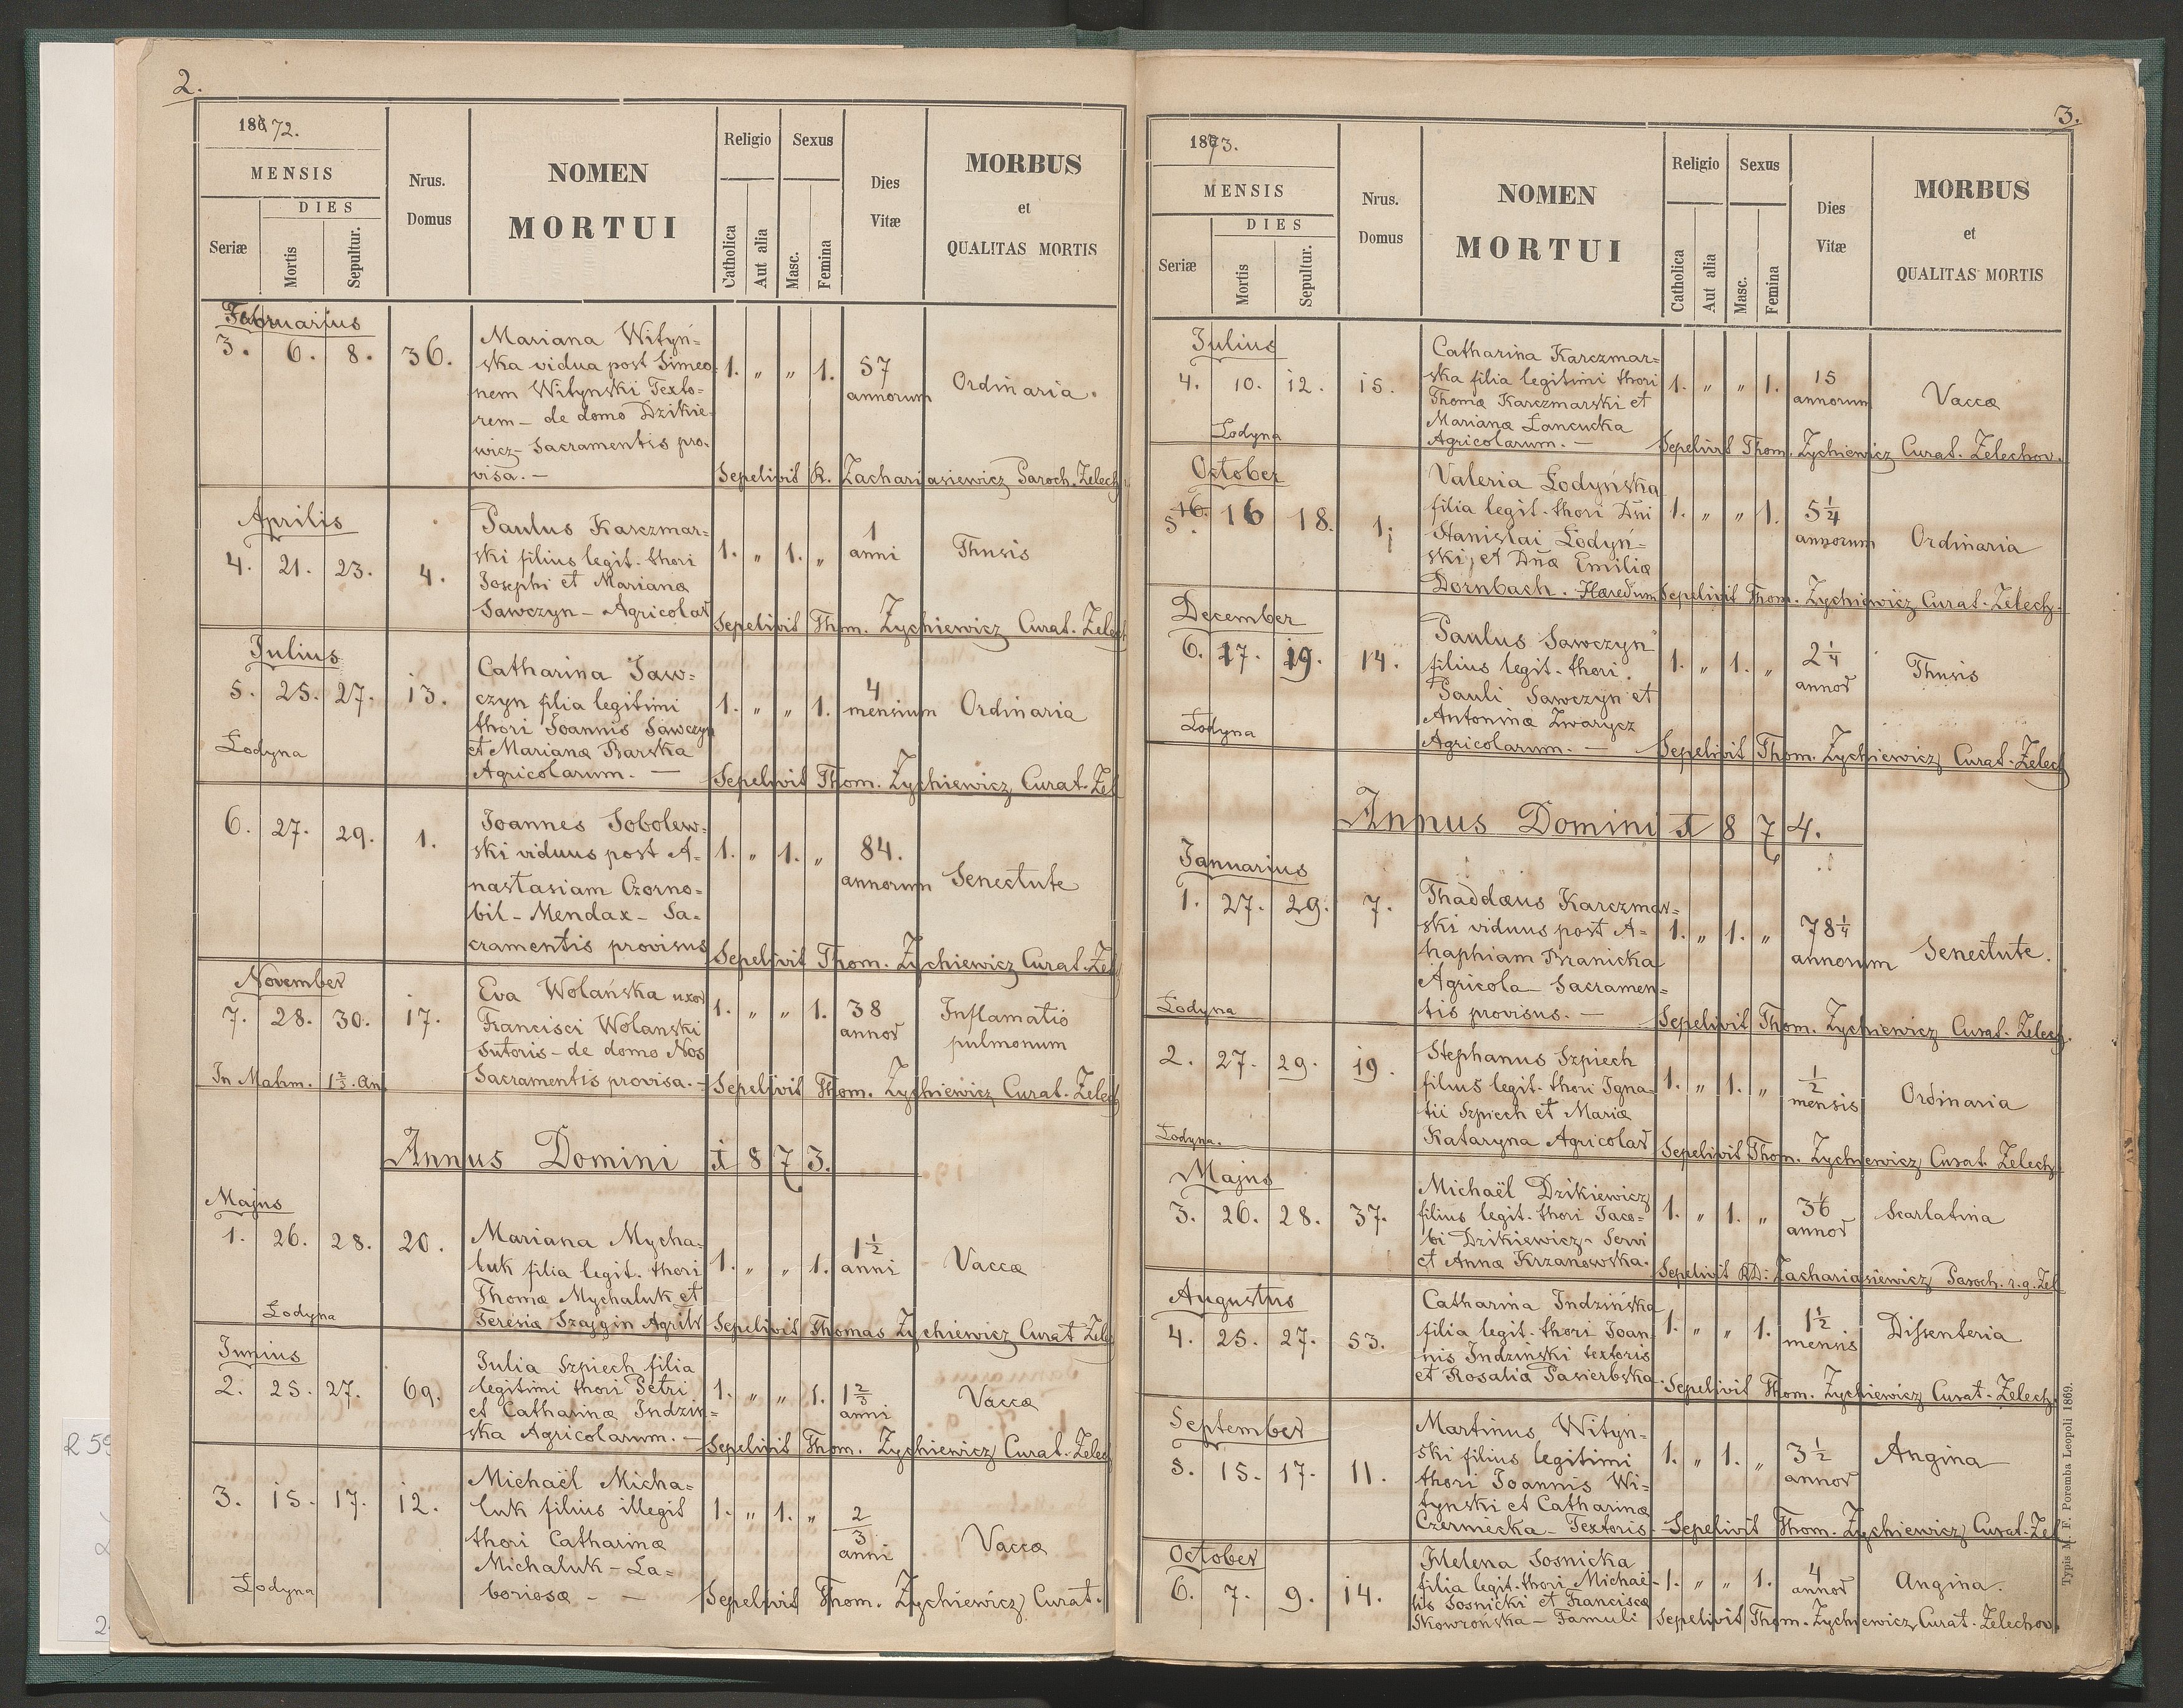 2.
1872.
MENSIS
DIES
Seriæ
Mortis
Sepultur.
Nrus.
Domus
NOMEN
MORTUI
Religio
Catholica
Aut alia
Sexus
Masc.
Femina
Dies
Vitæ
MORBUS
et
QUALITAS MORTIS
Februarius
3. 6. 8. 36.
Mariana Wityń-
ska vidua post Simeo-
nem Witynski Texto-
rem - de domo Dzikie-
wicz - Sacramentis pro-
visa. -
1. " " 1. 57
annorum
Ordinaria.
Sepelivit R. Zachariasiewicz Paroch. Zelech
Aprilis
4. 21. 23. 4.
Paulus Karczmar-
ski filius legit. thori
Josephi et Marianæ
Sawczyn - Agricolar
1. " 1. " 1
anni
Thusis
Sepelivit Thom. Zychiewicz Curat. Zelech
Julius
5. 25. 27. 13.
Catharina Saw-
czyn filia legitimi
thori Joannis Sawczyn
et Marianæ Barska
Agricolarum. -
1. " " 1. 4
mensium
Ordinaria
Łodyna
Sepelivit Thom. Zychiewicz Curat. Zel
6. 27. 29. 1.
Joannes Sobolew-
ski viduus post A-
nastasiam Czorno-
bil - Mendax - Sa-
cramentis provisus
1. " 1. " 84.
annorum
Senectute
Sepelivit Thom. Zychiewicz Curat. Zel
November
7. 28. 30. 17.
Eva Wolańska uxor
Francisci Wolanski
Sutoris - de domo Nos
Sacramentis provisa. -
1. " " 1. 38
annor
Inflamatio
pulmonum
In Mahm. 1 2/3. An
Sepelivit Thom. Zychiewicz Curat. Zelech
Annus Domini 1873.
Majus
1. 26. 28. 20.
Mariana Mycha-
luk filia legit. thori
Thomæ Mychaluk et
Teresiæ Szajgin Agrilr
1. " " 1. 1 1/2
anni
Vaccæ
Łodyna
Sepelivit Thomas Zychiewicz Curat Zele
Junius
2. 25. 27. 69.
Julia Szpiech filia
legitimi thori Petri
et Catharinæ Indziń-
ska Agricolarum. -
1. " " 1. 1 2/3
anni
Vaccæ
Sepelivit Thom. Zychiewicz Curat. Zelech
3. 15. 17. 12.
Michaël Micha-
luk filius illegit
thori Catharinæ
Michaluk - La-
boriosæ - -
1. " 1. " 2/3
anni
Vaccæ
Łodyna
Sepelivit Thom. Zychiewicz Curat.
3.
1873.
MENSIS
DIES
Seriæ
Mortis
Sepultur.
Nrus.
Domus
NOMEN
MORTUI
Religio
Catholica
Aut alia
Sexus
Masc.
Femina
Dies
Vitæ
MORBUS
et
QUALITAS MORTIS
Julius
4. 10. 12. 15.
Catharina Karczmar-
ska filia legitimi thori
Thomæ Karczmarski et
Marianæ Łancucka
Agricolarum. -
1. " " 1. 15
annorum
Vaccæ
Łodyna
Sepelivit Thom. Zychiewicz Curat. Zelechov.
October
16.
5. 16 18. 1.
Valeria Łodyńska
filia legit. thori Dñi
Stanislai Łodyn-
ski, et Dñæ Emiliæ
Dornbach. Hæredum
1. " " 1. 5 1/4
annorum
Ordinaria
Sepelivit Thom. Zychiewicz Curat. Zelech.
December
6. 17. 19. 14.
Paulus Sawczyn
filius legit. thori
Pauli Sawczyn et
Antoninæ Zwarycz
Agricolarum. -
1. " 1. " 2 1/4
annor
Thusis
Łodyna
Sepelivit Thom. Zychiewicz Curat. Zelech
Annus Domini 1874.
Januarius
1. 27. 29. 7.
Thaddæus Karczmar-
ski viduus post A-
haphiam Branicka
Agricola Sacramen-
tis provisus. -
1. " 1. " 78 1/4
annorum
Senectute.
Łodyna
Sepelivit Thom. Zychiewicz Curat. Zelech.
2. 27. 29. 19.
Stephanus Szpiech
filius legit. thori Igna-
tii Szpiech et Mariæ
Kataryna Agricolar
1. " 1. " 1/2
mensis
Ordinaria
Łodyna.
Sepelivit Thom. Zychiewicz Curat. Zelech.
Majus
3. 26. 28. 37.
Michaël Dzikiewicz
filius legit. thori Jaco-
bi Dzikiewicz - Servi
et Annæ Krzanowska.
1. " 1. " 3 1/6
annor
Scarlatina
Sepelivit RD: Zachariasiewicz Paroch. r. g. Zel
Augustus
4. 25. 27. 53.
Catharina Indzińska
filia legit. thori Joan-
nis Indzinski textoris
et Rosaliæ Pasierbska.
1. " " 1. 1 1/2
mensis
Dissenteria
Sepelivit Thom. Zychiewicz Curat. Zelech.
September
5. 15. 17. 11.
Martinus Wityń-
ski filius legitimi
thori Joannis Wi-
tynski et Catharinæ
Czerniecka - Textoris
1. " 1. " 3 1/2
annor
Angina
Sepelivit Thom. Zychiewicz Curat. Zel
October
6. 7. 9. 14.
Helena Sosnicka
filia legit. thori Michaë-
lis Sosnicki et Franciscæ
Skowrońska - Famuli
1. " " 1. 4
annor
Angina.
Sepelivit Thom. Zychiewicz Curat. Zelechov.
Typis M. F. Poremba Leopoli 1869.